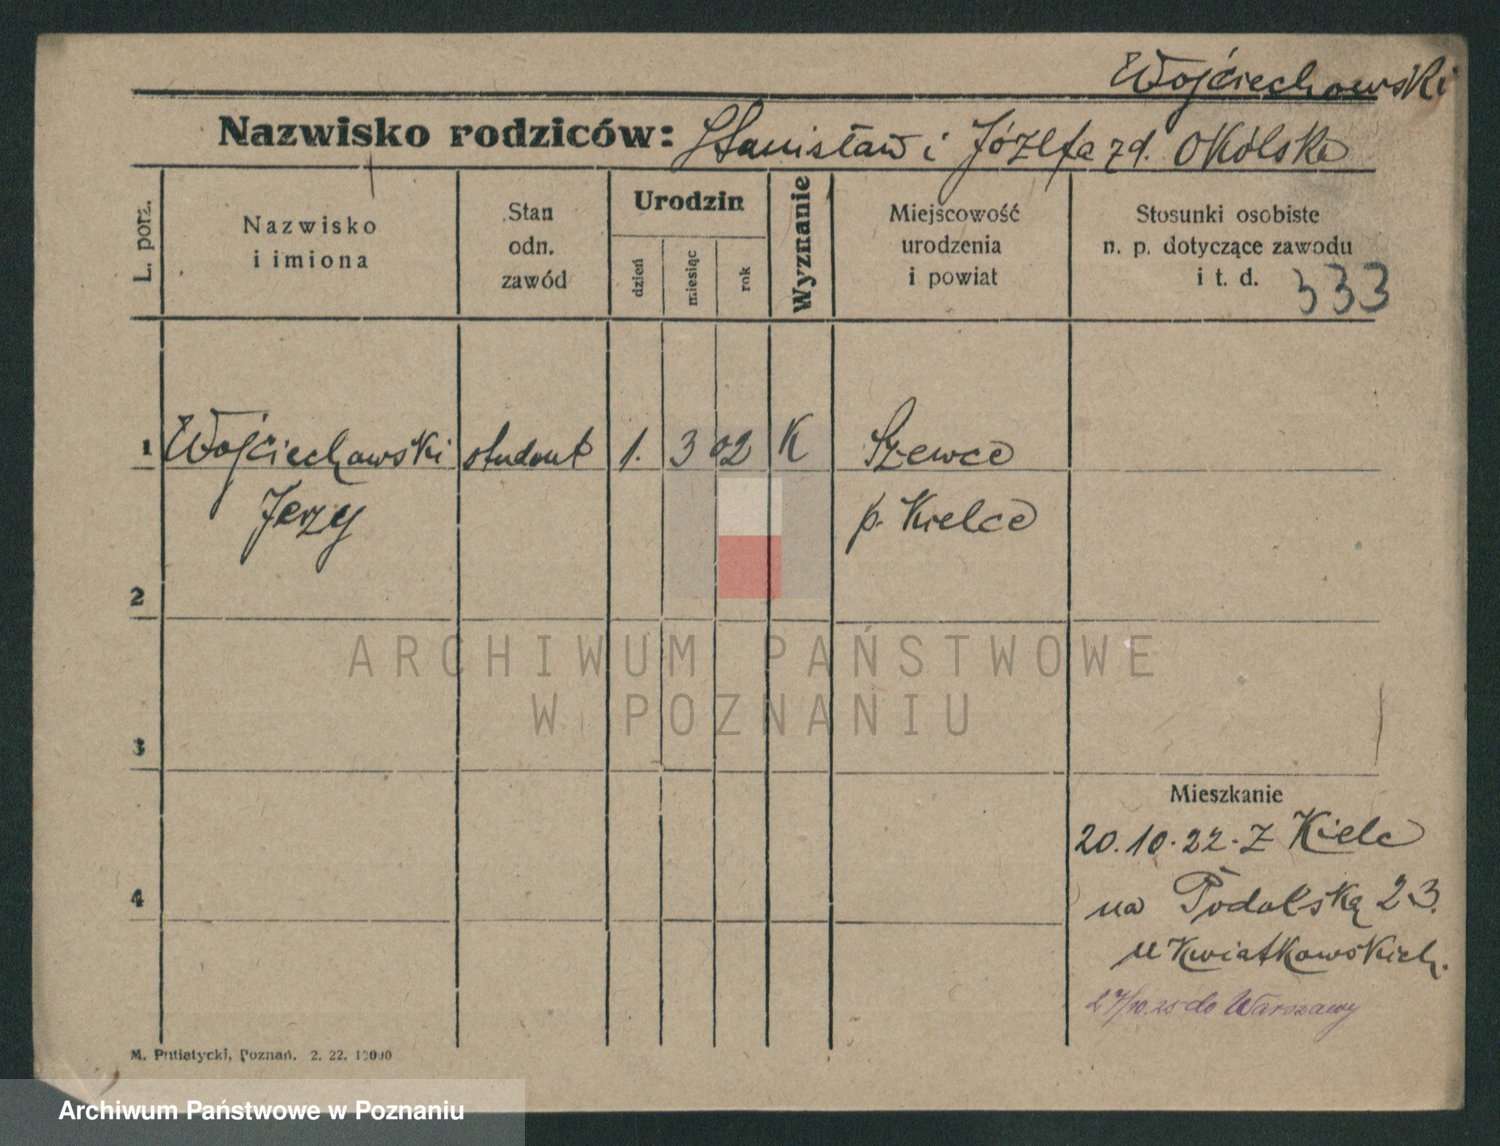 Wojciechowski
Nazwisko rodziców: Stanisław i Józefa zd. Okólska
L. porz.
Nazwisko
i imiona
Stan
odn.
zawód
Urodzin
dzień
miesiąc
rok
Wyznanie
Miejscowość
urodzenia
i powiat
Stosunki osobiste
n. p. dotyczące zawodu
i t. d.
333
1 Wojciechowski student 1. 3 02 K Szewce
Jerzy p. Kielce
2
ARCHIWUM PAŃSTWOWE
W POZNANIU
3
Mieszkanie
20.10.22. z Kielc
4
na Podolską 23.
u Kwiatkowskich.
27/10.25 do Warszawy
M. Putiatycki, Poznań. 2. 22. 10000
Archiwum Państwowe w Poznaniu